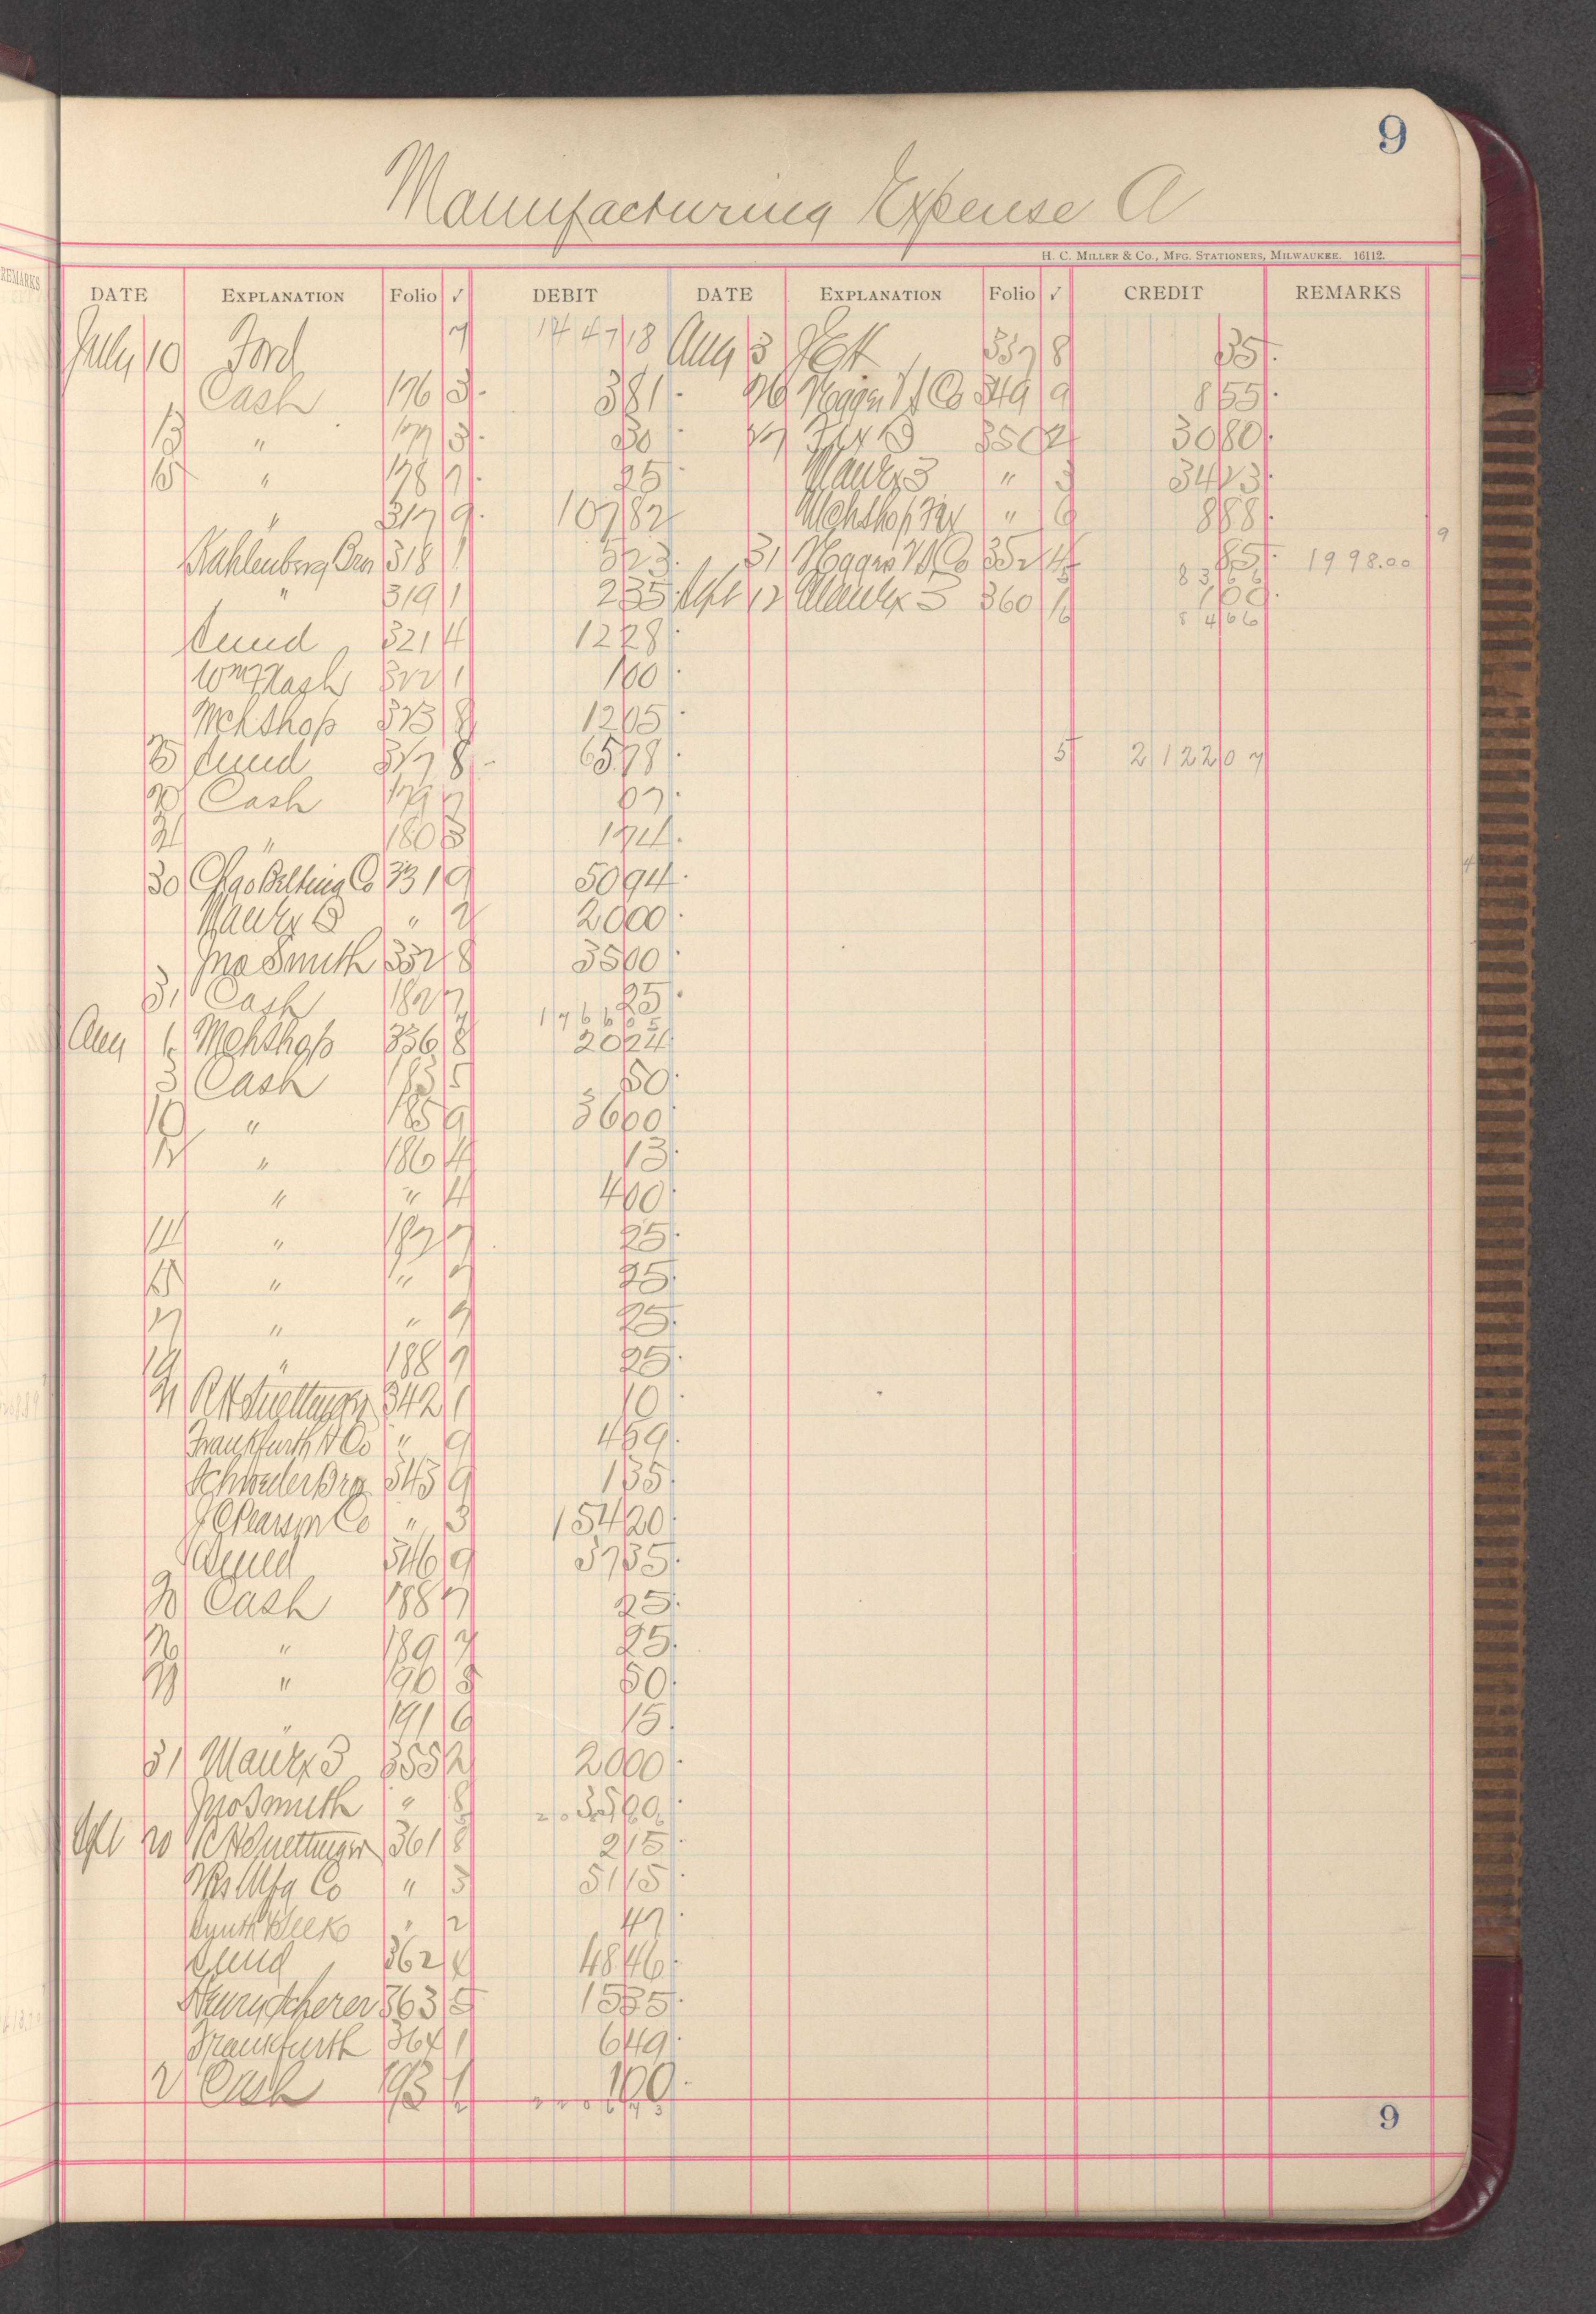 9
Manufacturing Expense A
H. C. MILLER & CO., MFG. STATIONERS, MILWAUKEE. 16112.
DATE EXPLANATION Folio √ DEBIT DATE EXPLANATION Folio √ CREDIT REMARKS
July 10 Ford 7 1447 18 Aug 3 337 8 35
Cash 176 3 3 81 26 349 9 8 55
13 " 177 3 30 27 350 2 30 80
15 " 178 7 25 " 3 34 23
" 317 9 107 82 Mchshop " 6 8 88
Kahlenberg Bros 318 1 5 23 31 352 4 85 1998.00
" 319 1 2 35 Sept 12 360 1 00
83 66
84 66
Sund 321 4 12 28
Wm Nash 322 1 1 00
Mchshop 323 8 12 05
25 Sund 327 8 65 78 5 2122 07
Cash 179 7 07
21 " 180 3 1 74
30 Chgo Belting Co 331 9 50 94
" 2 20 00
Jno Smith 332 8 35 00
31 Cash 182 7 25
1766 05
Aug 1 Mchshop 336 8 20 24
3 Cash 183 5 50
10 " 185 9 36 00
12 " 186 4 13
" " 4 4 00
14 " 187 7 25
15 " " 7 25
17 " " 7 25
19 " 188 7 25
21 342 1 10
Frankfurth H Co " 9 4 59
Schroeder Bros 343 9 1 35
J C Pearson Co " 3 154 20
Sund 346 9 37 35
Cash 188 7 25
26 " 189 7 25
" 190 8 50
" 191 6 15
31 355 2 20 00
Jno Smith " 8 35 00
Sept 20 361 8 2 15
Mfg Co " 3 51 15
" 2 47
Sund 362 4 48 46
Henry Scherer 363 5 15 35
Frankfurth 364 1 6 49
2 Cash 193 1 1 00
2206 73
9